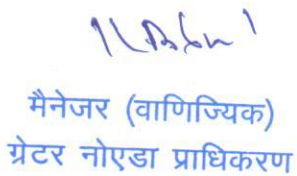 मैनेजर (वाणिज्यिक)
ग्रेटर नोएडा प्राधिकरण